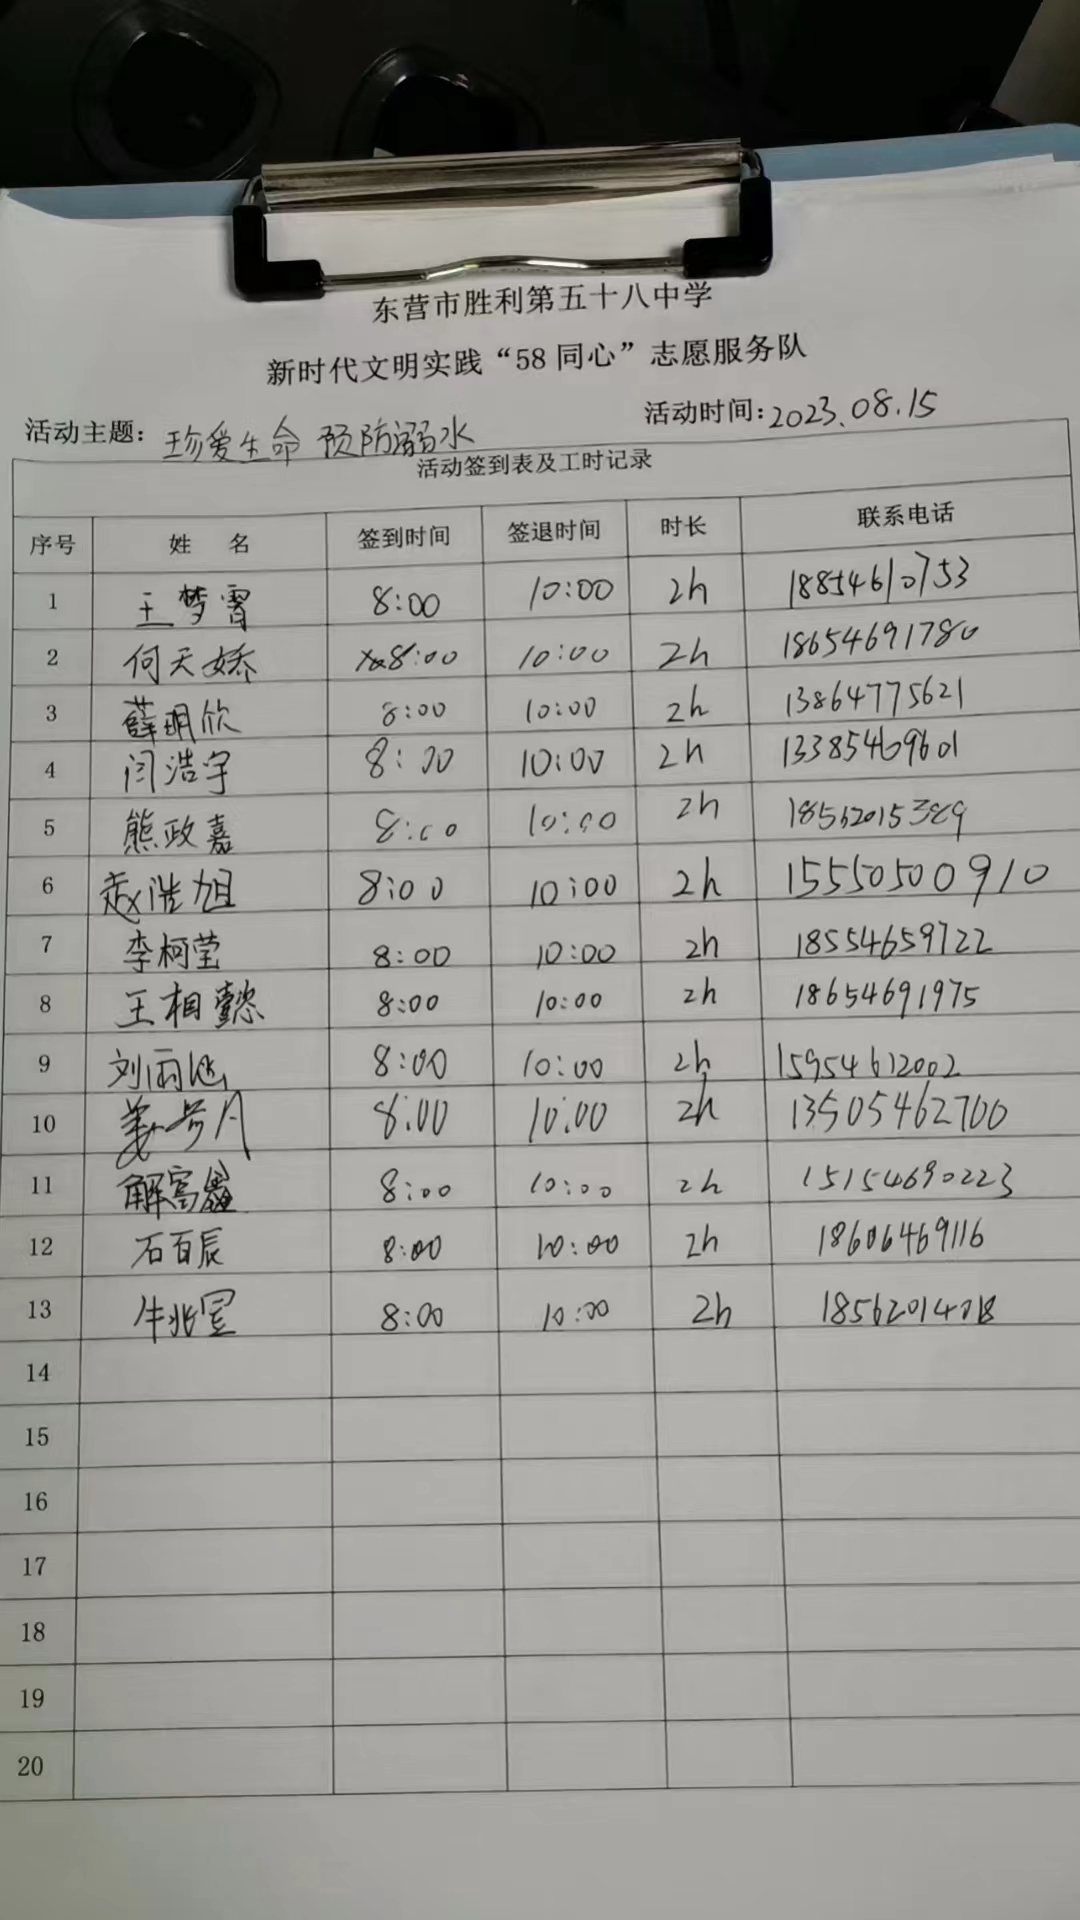 东营市胜利第五十八中学
新时代文明实践“58同心”志愿服务队
活动主题：珍爱生命 预防溺水 活动时间：2023.08.15
活动签到表及工时记录
序号 姓 名 签到时间 签退时间 时长 联系电话
1 王梦霄 8:00 10:00 2h 18854610753
2 何天娇 8:00 10:00 2h 18654691780
3 薛明欣 8:00 10:00 2h 13864775621
4 闫浩宇 8:00 10:00 2h 13385469601
5 熊政嘉 8:00 10:00 2h 18562015389
6 赵浩旭 8:00 10:00 2h 15550500910
7 李柯莹 8:00 10:00 2h 18554659722
8 王相懿 8:00 10:00 2h 18654691975
9 刘雨 8:00 10:00 2h 15954612002
10 姜 月 8:00 10:00 2h 13505462700
11 解富鑫 8:00 10:00 2h 15154690223
12 石百辰 8:00 10:00 2h 18606469116
13 牛兆 8:00 10:00 2h
14
15
16
17
18
19
20